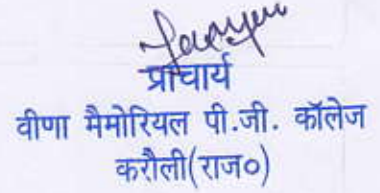 प्राचार्य
वीणा मैमोरियल पी.जी. कॉलेज
करौली(राज०)